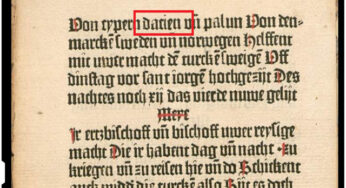 Von typern dacien vñ palun Von den-
marckē sweden vñ norwegen Helffent
mit uwer macht dē turckē sweigē Uff
dinstag vor sant iorgē hochgezijt Des
nachtes noch xij das vierde nuwe gelijt
Meye
Ir ertzbischoff vñ bischoff uwer reysige
macht Die ir habent dag vñ nacht zu
kriegen vñ zu reisen hie vñ do Schickent
auch widd die turckē also Bijt doch